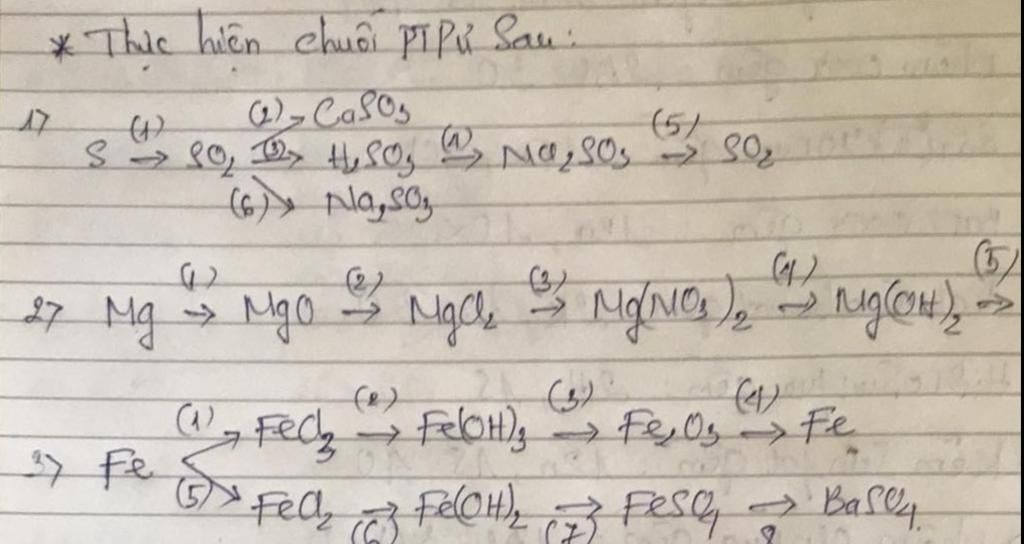 * Thực hiện chuỗi PTPứ Sau:
(2) CaSO3
1> S (1)→ SO2 (3)→ H2SO3 (4)→ Na2SO3 (5)→ SO2
(6) Na2SO3
2> Mg (1)→ MgO (2)→ MgCl2 (3)→ Mg(NO3)2 (4)→ Mg(OH)2 (5)→
(1) FeCl3 (2)→ Fe(OH)3 (3)→ Fe2O3 (4)→ Fe
3> Fe
(5) FeCl2 →(6) Fe(OH)2 →(7) FeSO4 →8 BaSO4.